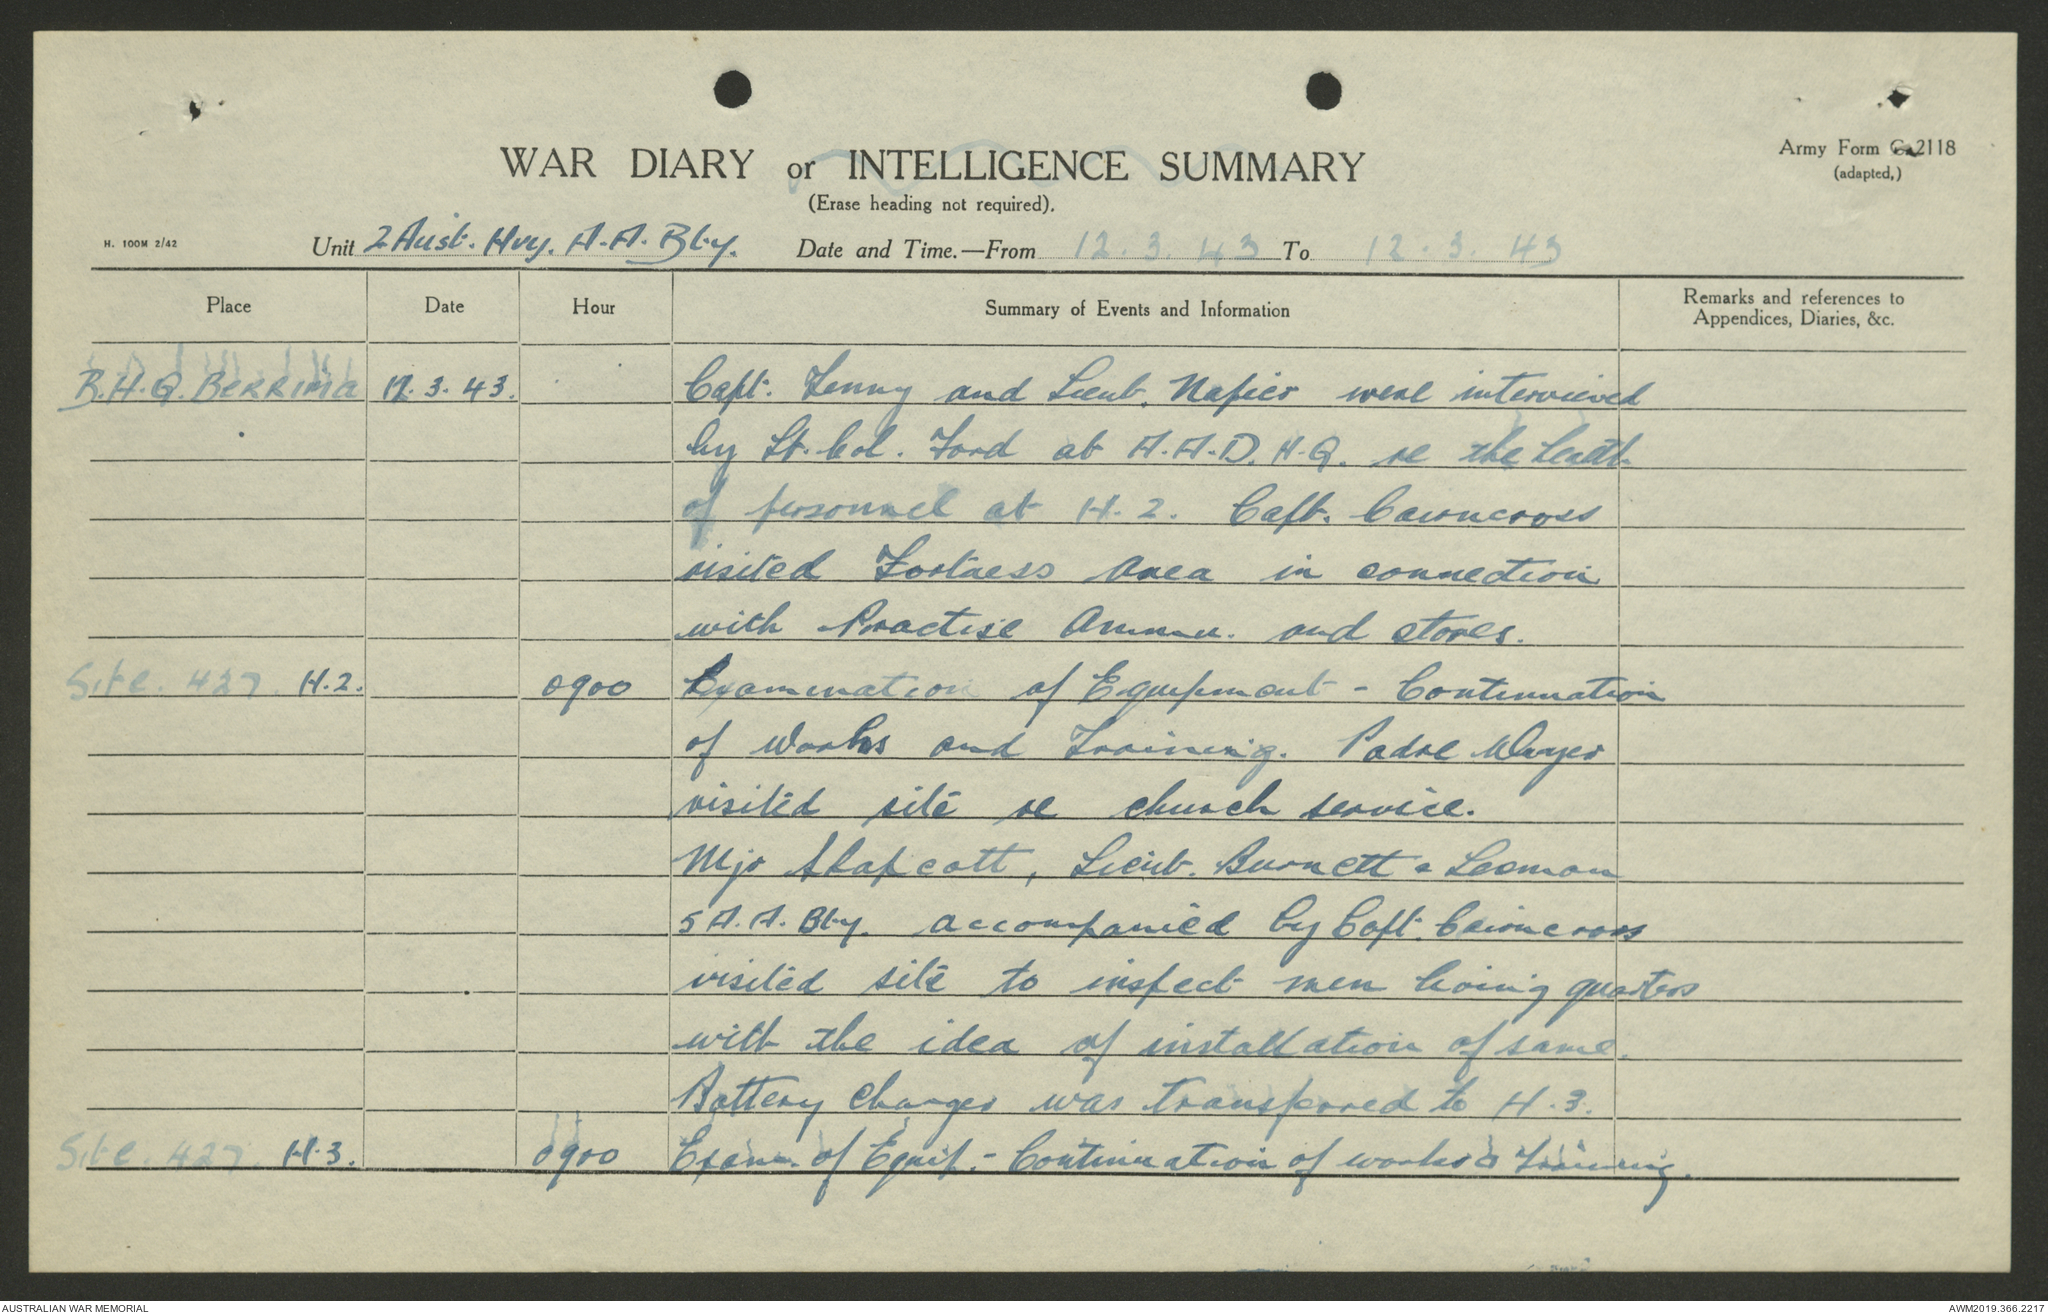 WAR DIARY or INTELLIGENCE SUMMARY
Army Form C. 2118
(adapted,)
(Erase heading not required).
H. 100M 2/42
Unit 2 Aust. Hvy. A.A. Bty. Date and Time.—From 12.3.43 To 12.3.43
Place Date Hour Summary of Events and Information Remarks and references to
Appendices, Diaries, &c.
B.H.Q. BERRIMA 12.3.43. Capt. Fenny and Lieut. Napier were interviewed
by Lt. Col. Ford at A.A.D.H.Q. re the health
of personnel at H.2. Capt. Cairncross
visited Fortness Area in connection
with Practise Ammn. and stores.
Site. 427 H.2. 0900 Examination of Equipment - Continuation
of Works and Training. Padre
visited site re church service.
Mjr Shapcott, Lieut. Burnett & Leeman
5 A.A. Bty. accompanied by Capt. Cairncross
visited site to inspect men living quarters
with the idea of installation of same.
Battery Charger was transferred to H.3.
Site. 427. H.3. 0900 Exam. of Equip. - Continuation of works & Training.
AUSTRALIAN WAR MEMORIAL
AWM2019.366.2217